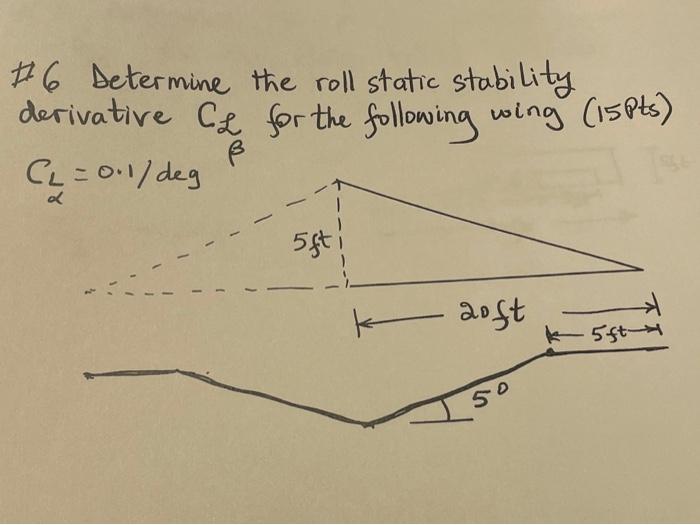 #6 Determine the roll static stability
derivative Cℒβ for the following wing (15Pts)
CLα = 0.1/deg
5ft
20ft
5ft
5°